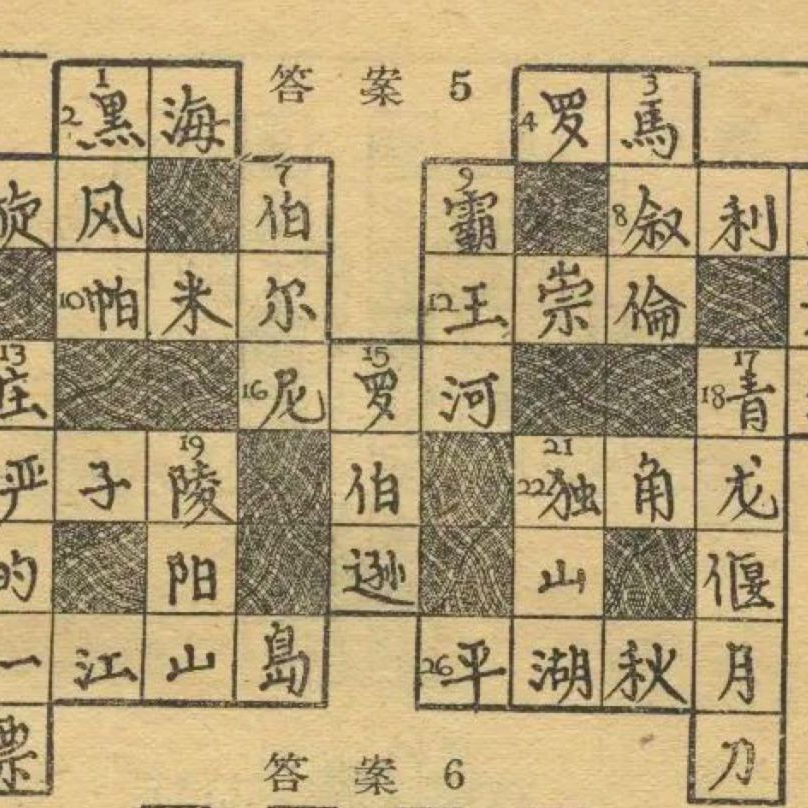 答案5
1 2 黑 海 4 罗 3 馬
旋 风 7 伯 9 霸 8 叙 利
10 帕 米 尔 12 王 崇 倫
13 庄 16 尼 15 罗 河 17 18 青
严 子 19 陵 伯 21 22 独 角 龙
的 阳 逊 山 偃
一 江 山 島 26 平 湖 秋 月
票 刀
答案6